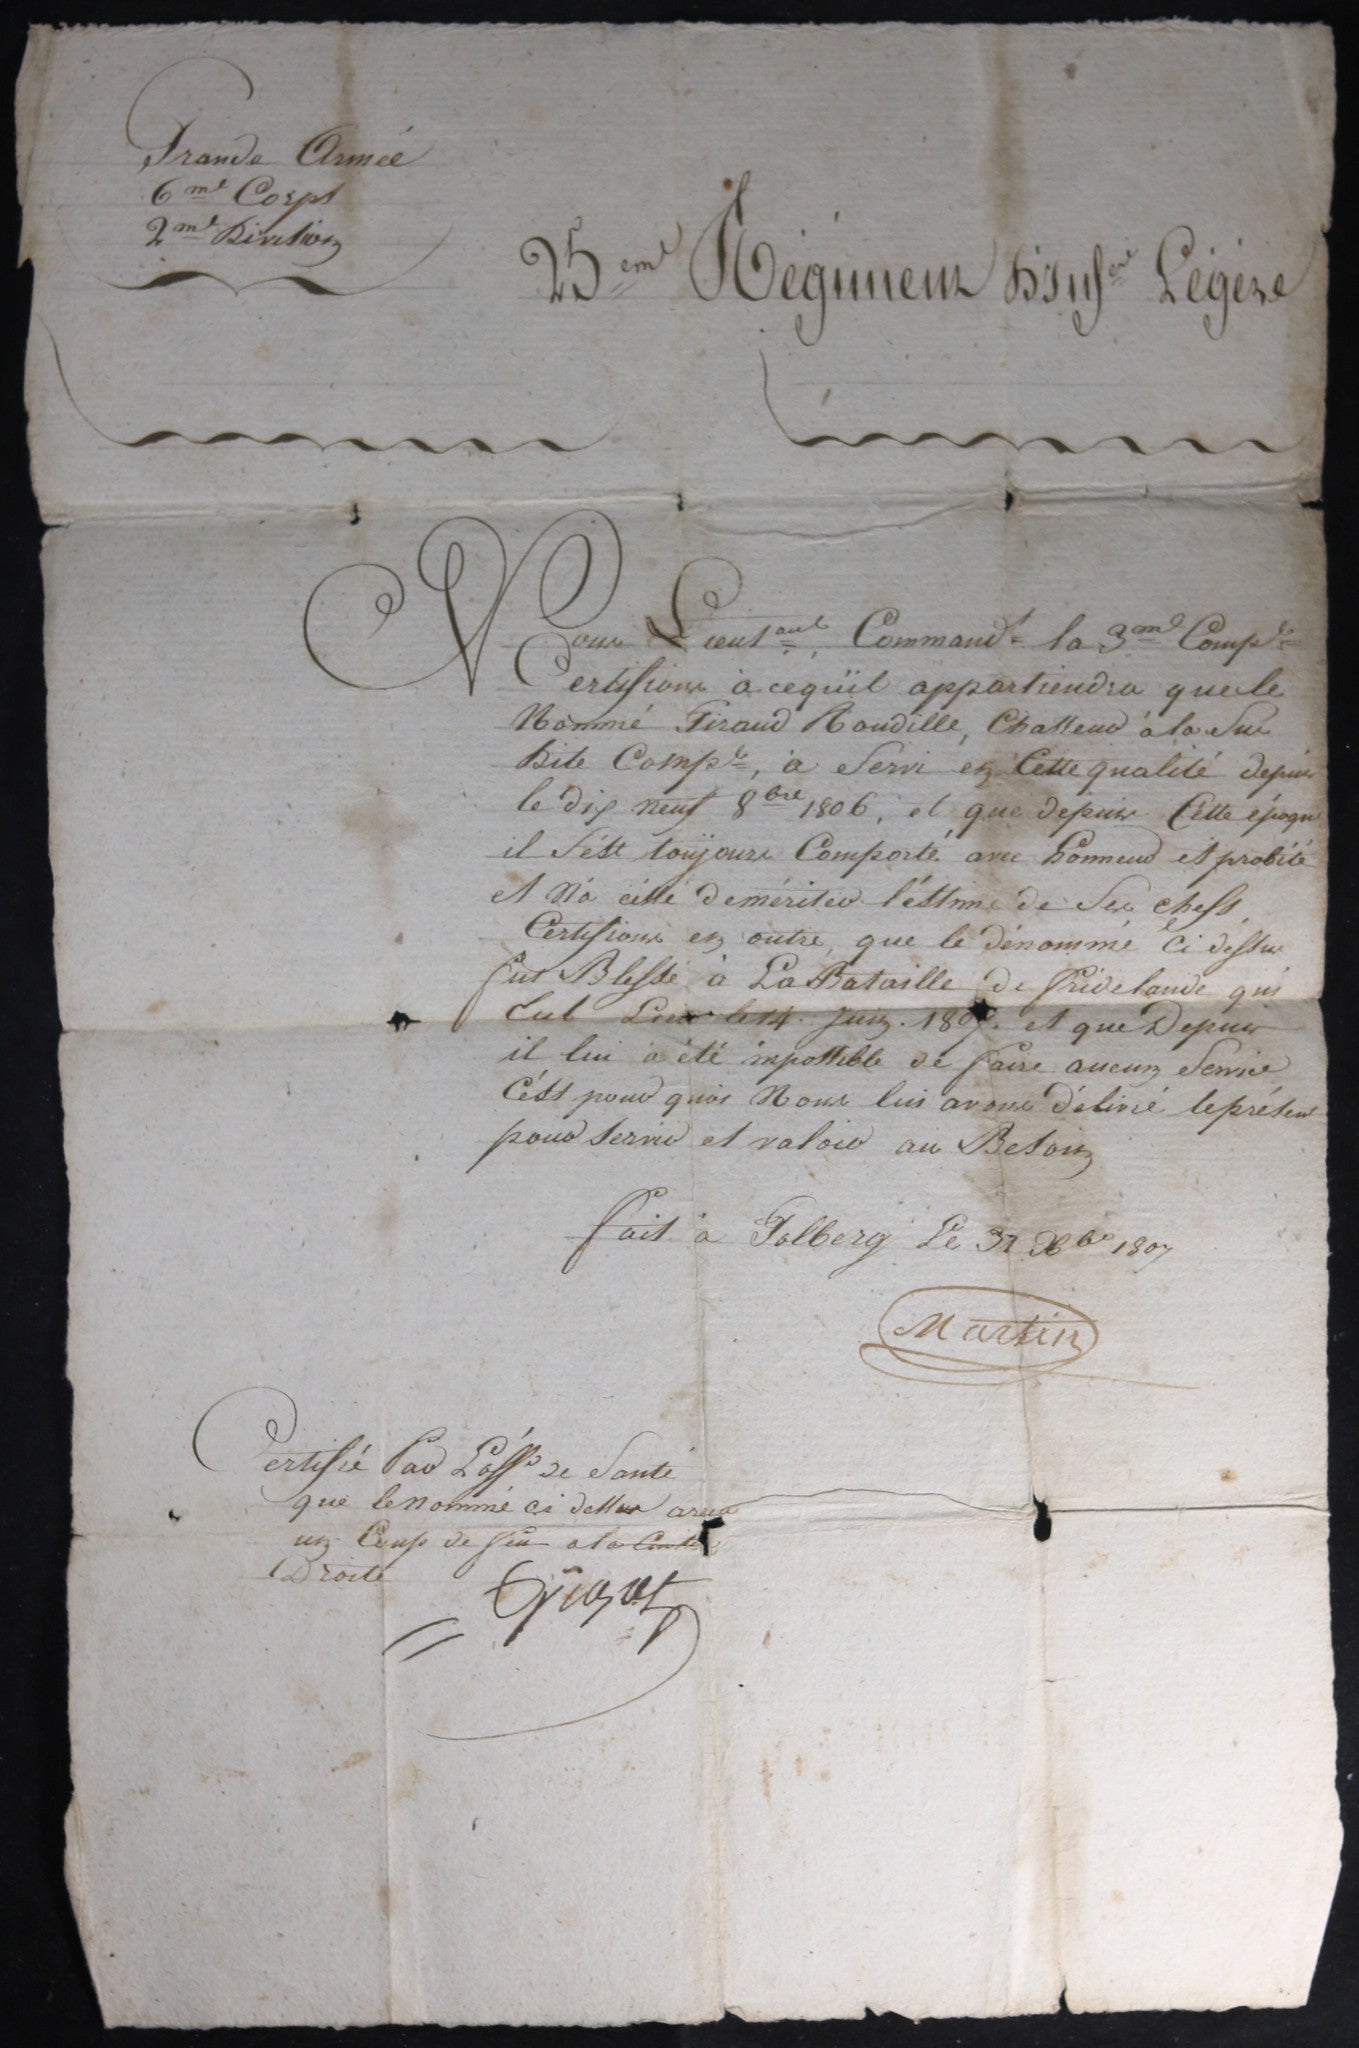 Grande Armée
6me Corps
2me Division
25eme Régiment D'Infrie Légére
Nous Lieutant, Commandt la 3me Compie
Certifions à cequ'il appartiendra que le
Nommé Giraud Roudille, Chasseur à la Sus
Dite Compie, à Servi en Cette qualité depuis
le dix neuf 8bre 1806, et que depuis Cette époque
il S'est toujours Comporté avec honneur et probité
et N'a cessé demériter l'éstime de Ses chefs
Certifions en outre, que le dénommé Ci dessus
fut Blessé à La Bataille de fridelande qui
Eut Lieu le 14 Juin 1807. et que Depuis
il lui a été impossible de faire aucun Service
C'est pour quoi Nous lui avons Délivré leprésent
pour servir et valoir au Besoin
fait à Golberg Le 31 Xbre 1807
Martin
Certifié Par L'offer de Santé
que lenommé ci dessus a reçu
un Coup de feu a la
Droite